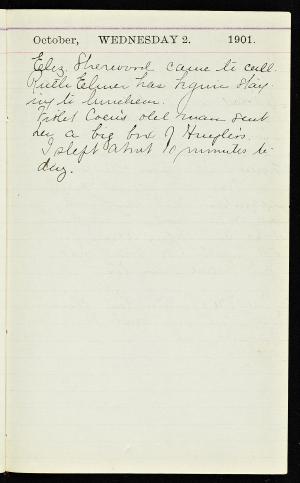 October, WEDNESDAY 2. 1901.
Eliz. Sherwood came to call.
Ruth Elmer has begun stay-
ing to luncheon.
Violet Coen's old man sent
her a big box of Huyler's.
I slept about 10 minutes to-
day.